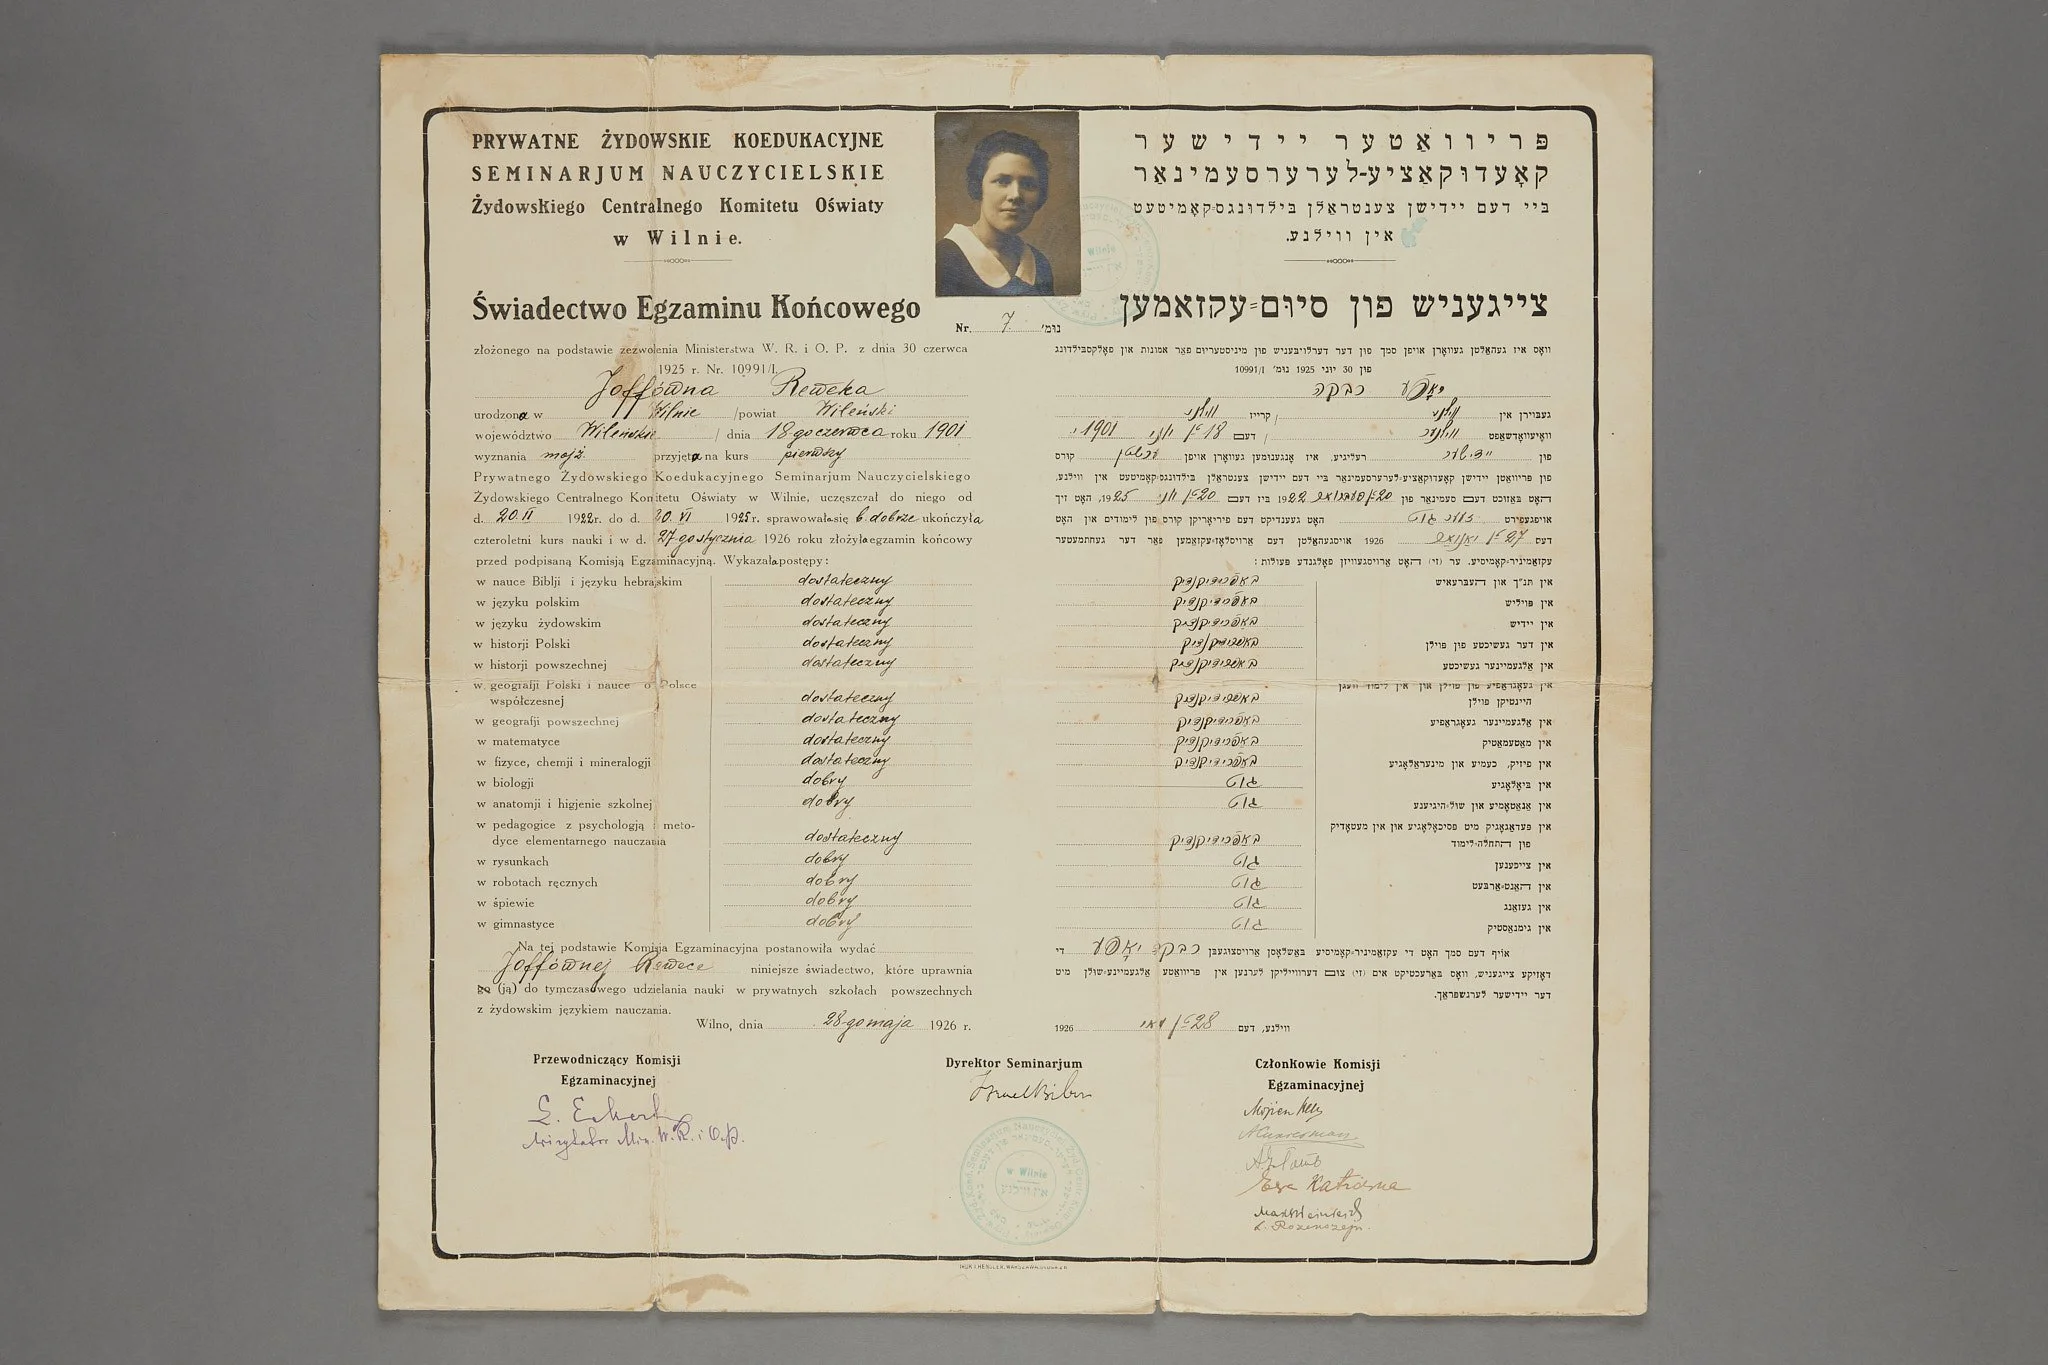 PRYWATNE ŻYDOWSKIE KOEDUKACYJNE
SEMINARJUM NAUCZYCIELSKIE
Żydowskiego Centralnego Komitetu Oświaty
w Wilnie.
Świadectwo Egzaminu Końcowego
Nr. 7. נומ'
złożonego na podstawie zezwolenia Ministerstwa W. R. i O. P. z dnia 30 czerwca
1925 r. Nr. 10991/I.
Joffówna Reweka
urodzona w Wilnie / powiat Wileński
województwo Wileńskie / dnia 18-go czerwca roku 1901
wyznania mojż. przyjęta na kurs pierwszy
Prywatnego Żydowskiego Koedukacyjnego Seminarjum Nauczycielskiego
Żydowskiego Centralnego Komitetu Oświaty w Wilnie, uczęszczał do niego od
d. 20.II 1922 r. do d. 20.VI 1925 r. sprawowała się b. dobrze ukończyła
czteroletni kurs nauki i w d. 27 go stycznia 1926 roku złożyła egzamin końcowy
przed podpisaną Komisją Egzaminacyjną. Wykazała postępy:
w nauce Biblji i języku hebrajskim dostateczny
w języku polskim dostateczny
w języku żydowskim dostateczny
w historji Polski dostateczny
w historji powszechnej dostateczny
w geografji Polski i nauce o Polsce
współczesnej dostateczny
w geografji powszechnej dostateczny
w matematyce dostateczny
w fizyce, chemji i mineralogji dostateczny
w biologji dobry
w anatomji i higjenie szkolnej dobry
w pedagogice z psychologją i meto-
dyce elementarnego nauczania dostateczny
w rysunkach dobry
w robotach ręcznych dobry
w śpiewie dobry
w gimnastyce dobry
Na tej podstawie Komisja Egzaminacyjna postanowiła wydać
Joffównej Rewece niniejsze świadectwo, które uprawnia
go (ją) do tymczasowego udzielania nauki w prywatnych szkołach powszechnych
z żydowskim językiem nauczania.
Wilno, dnia 28-go maja 1926 r.
פּריוואַטער יידישער
קאָעדוקאַציע-לערערסעמינאַר
ביי דעם יידישן צענטראַלן בילדונגס-קאָמיטעט
אין ווילנע.
צייגעניש פון סיום-עקזאמען
וואָס איז געהאַלטן געוואָרן אויפן סמך פון דער דערלויבעניש פון מיניסטעריום פאַר אמונות און פאָלקסבילדונג
פון 30 יוני 1925 נומ' 10991/I
יאָפע רבקה
געבוירן אין ווילנע / קרייז ווילנע
וואָיעוואָדשאַפט ווילנער / דעם 18-טן יוני 1901 י
פון יידישער רעליגיע, איז אָנגענומען געוואָרן אויפן ערשטן קורס
פון פּריוואַטן יידישן קאָעדוקאַציע-לערערסעמינאַר ביי דעם יידישן צענטראַלן בילדונגס-קאָמיטעט אין ווילנע,
האָט באַזוכט דעם סעמינאַר פון 20-טן פעברואר 1922 ביז דעם 20-טן יוני 1925, האָט זיך
אויפגעפירט זייער גוט האָט געענדיקט דעם פיריאָריקן קורס פון לימודים און האָט
דעם 27-טן יאַנואַר 1926 אויסגעהאַלטן דעם אַרויסלאָז-עקזאַמען פאַר דער געחתמעטער
עקזאַמיניר-קאָמיסיע. ער (זי) האָט אַרויסגעוויזן פאָלגנדע פּעולות:
אין תנ"ך און העברעאיש באַפרידיקנדיק
אין פּויליש באַפרידיקנדיק
אין יידיש באַפרידיקנדיק
אין דער געשיכטע פון פּוילן באַפרידיקנדיק
אין אַלגעמיינער געשיכטע באַפרידיקנדיק
אין געאָגראַפיע פון פּוילן און אין לימוד וועגן
היינטיקן פּוילן באַפרידיקנדיק
אין אַלגעמיינער געאָגראַפיע באַפרידיקנדיק
אין מאַטעמאַטיק באַפרידיקנדיק
אין פיזיק, כעמיע און מינעראַלאָגיע באַפרידיקנדיק
אין ביאָלאָגיע גוט
אין אַנאַטאָמיע און שול-היגיענע גוט
אין פּעדאַגאָגיק מיט פּסיכאָלאָגיע און אין מעטאָדיק
פון התחלה-לימוד באַפרידיקנדיק
אין צייכענען גוט
אין האַנט-אַרבעט גוט
אין געזאַנג גוט
אין גימנאַסטיק גוט
אויף דעם סמך האָט די עקזאַמיניר-קאָמיסיע באַשלאָסן אַרויסצוגעבן רבקה יאָפע די
דאָזיקע צייגעניש, וואָס באַרעכטיקט אים (זי) צום דערווייליקן לערנען אין פּריוואַטע אַלגעמיינע-שולן מיט
דער יידישער לערנשפּראַך.
ווילנע, דעם 28-טן מאי 1926
Przewodniczący Komisji
Egzaminacyjnej
Dyrektor Seminarjum
Członkowie Komisji
Egzaminacyjnej
wizytator Min. W. R. i O. P.
w Wilnie
אין ווילנע
Ewa
L. Rozenszejn